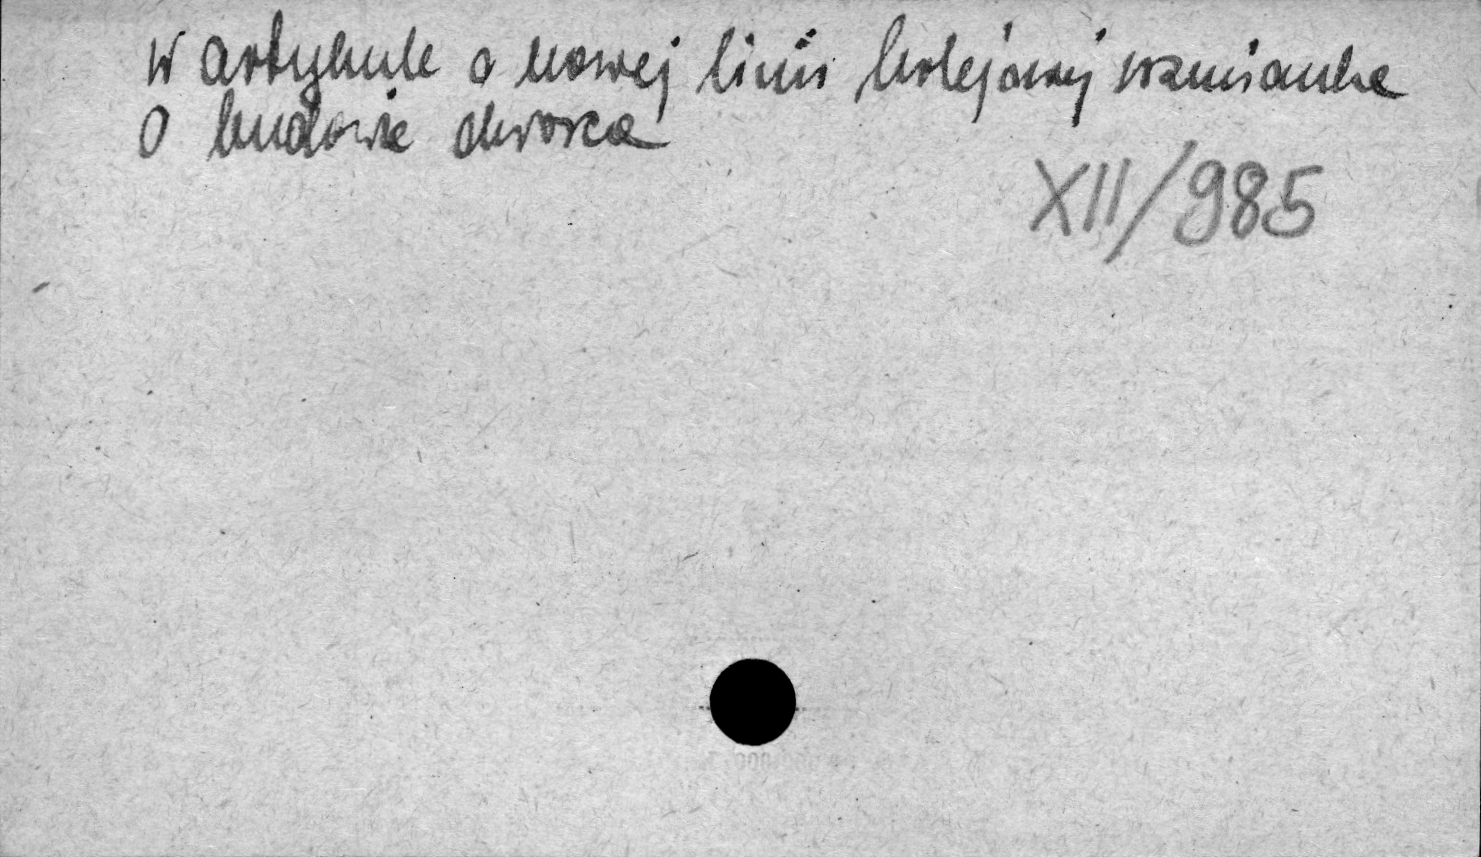 W artykule o nowej linii kolejowej wzmianka
o budowie dworca
XII/985